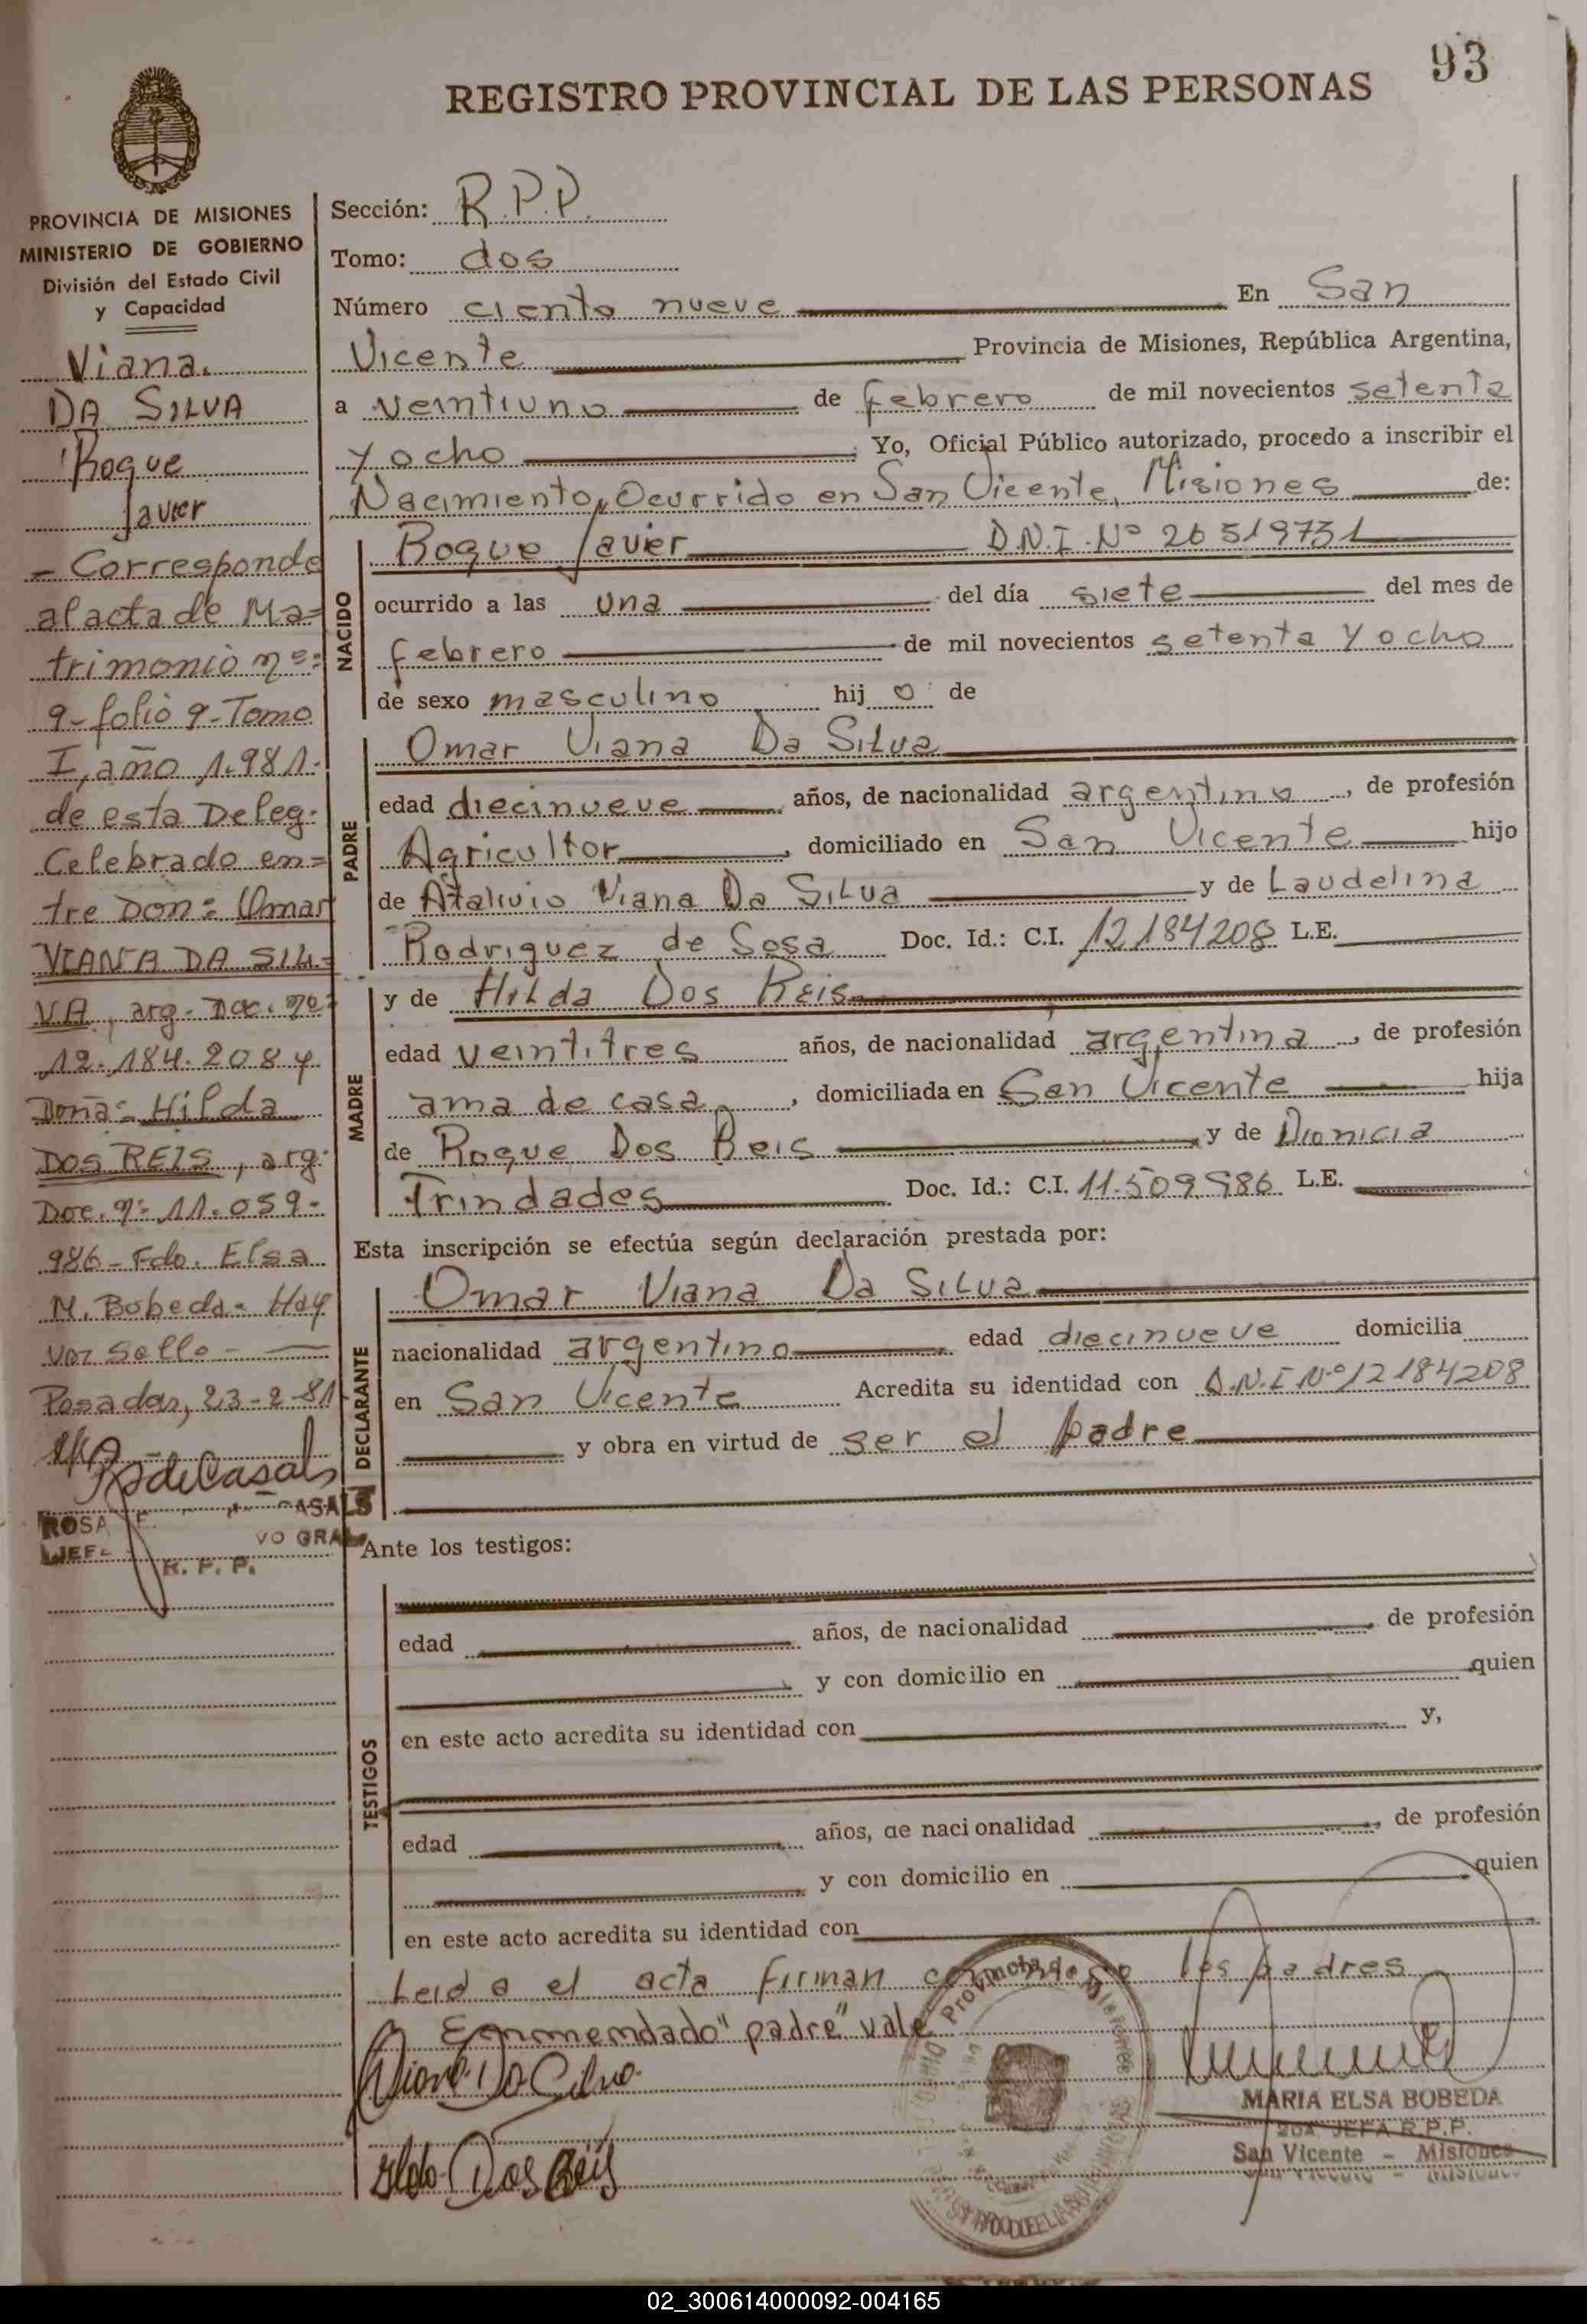 93
REGISTRO PROVINCIAL DE LAS PERSONAS
PROVINCIA DE MISIONES
MINISTERIO DE GOBIERNO
División del Estado Civil
y Capacidad
Viana.
DA SILVA
Roque
Javier
- Corresponde
al acta de Ma=
trimonio nº:
9- folio 9- Tomo
I, año 1.981.-
de esta Deleg.
Celebrado en=
tre Don: Omar
VIANA DA SIL=
VA, arg- Doc. nº:
12.184.208 y
Doña: Hilda
DOS REIS, arg.
Doc. nº 11.059-
986- Fdo. Elsa
M. Bobeda- Hay
un Sello- —
Posadas, 23-2-81
RdeCasals
ROSA E. CASALS
JEF VO GRAL
R. P. P.
Sección: R.P.P.
Tomo: dos
Número ciento nueve En San
Vicente Provincia de Misiones, República Argentina,
a veintiuno de febrero de mil novecientos setenta
y ocho Yo, Oficial Público autorizado, procedo a inscribir el
Nacimiento, Ocurrido en San Vicente, Misiones de:
NACIDO
Roque Javier D.N.I. Nº 26519731
ocurrido a las una del día siete del mes de
febrero de mil novecientos setenta y ocho
de sexo masculino hijo de
PADRE
Omar Viana Da Silva
edad diecinueve años, de nacionalidad argentino, de profesión
Agricultor, domiciliado en San Vicente hijo
de Atalivio Viana Da Silva y de Laudelina
Rodriguez de Sosa Doc. Id.: C.I. 12184208 L.E.
MADRE
y de Hilda Dos Reis
edad veintitres años, de nacionalidad argentina, de profesión
ama de casa, domiciliada en San Vicente hija
de Roque Dos Reis y de Dionicia
Trindades Doc. Id.: C.I. 11.509.986 L.E.
Esta inscripción se efectúa según declaración prestada por:
DECLARANTE
Omar Viana Da Silva
nacionalidad argentino edad diecinueve domicilia
en San Vicente Acredita su identidad con D.N.I Nº 12184208
y obra en virtud de ser el padre
Ante los testigos:
TESTIGOS
edad años, de nacionalidad , de profesión
y con domicilio en quien
en este acto acredita su identidad con y,
edad años, de nacionalidad , de profesión
y con domicilio en quien
en este acto acredita su identidad con
Leida el acta firman conmigo los padres
Enmendado "padre" vale
Viana Da Silva
Ilda Dos Reis
Provincia de Misiones
MARIA ELSA BOBEDA
2DA. JEFA R.P.P.
San Vicente - Misiones
02_300614000092-004165